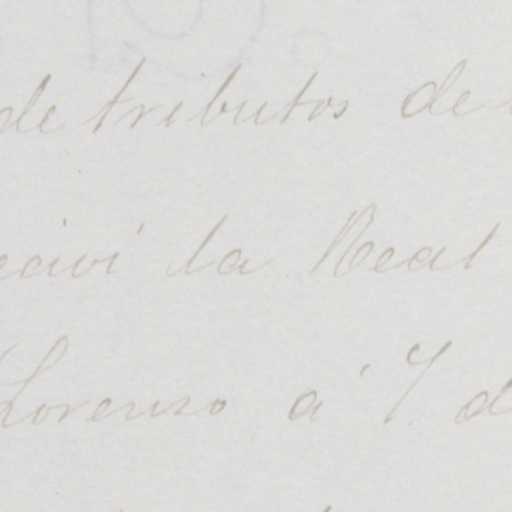 de tributos de
la Real
Lorenzo á 7 d